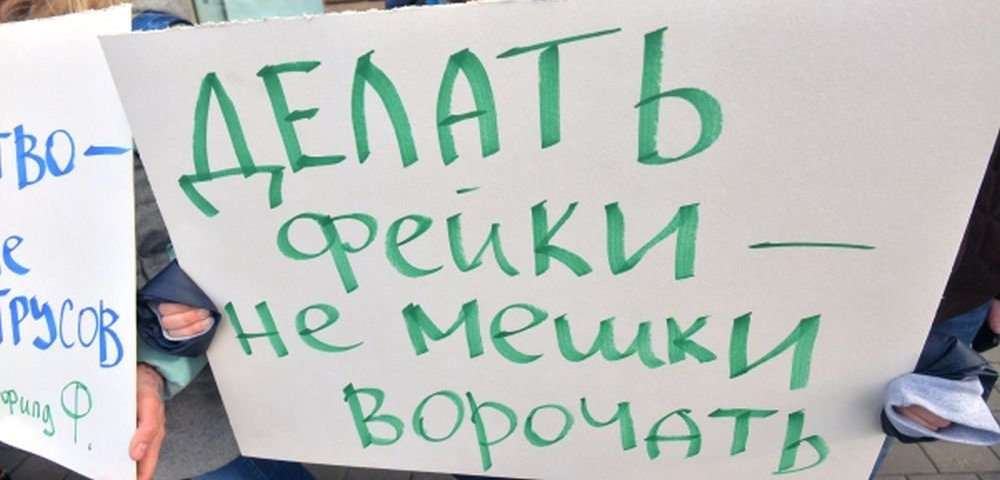 ДЕЛАТЬ
фейки —
не мешки
ворочать
ТВО —
е
ТРУСОВ
Ф.